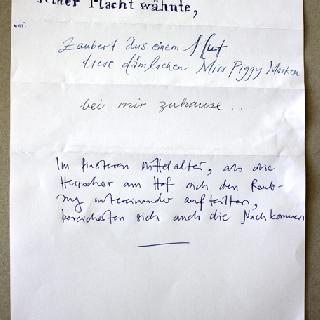 der Macht wähnte,
Zaubert aus einem
diese dämlichen Miss Piggy Masken
bei mir zuhause ..
Im finsteren Mittelalter, als die
Herrscher am Hof sich den Raub-
zug untereinander aufteilten,
bereicherten sich auch die Nachkommen